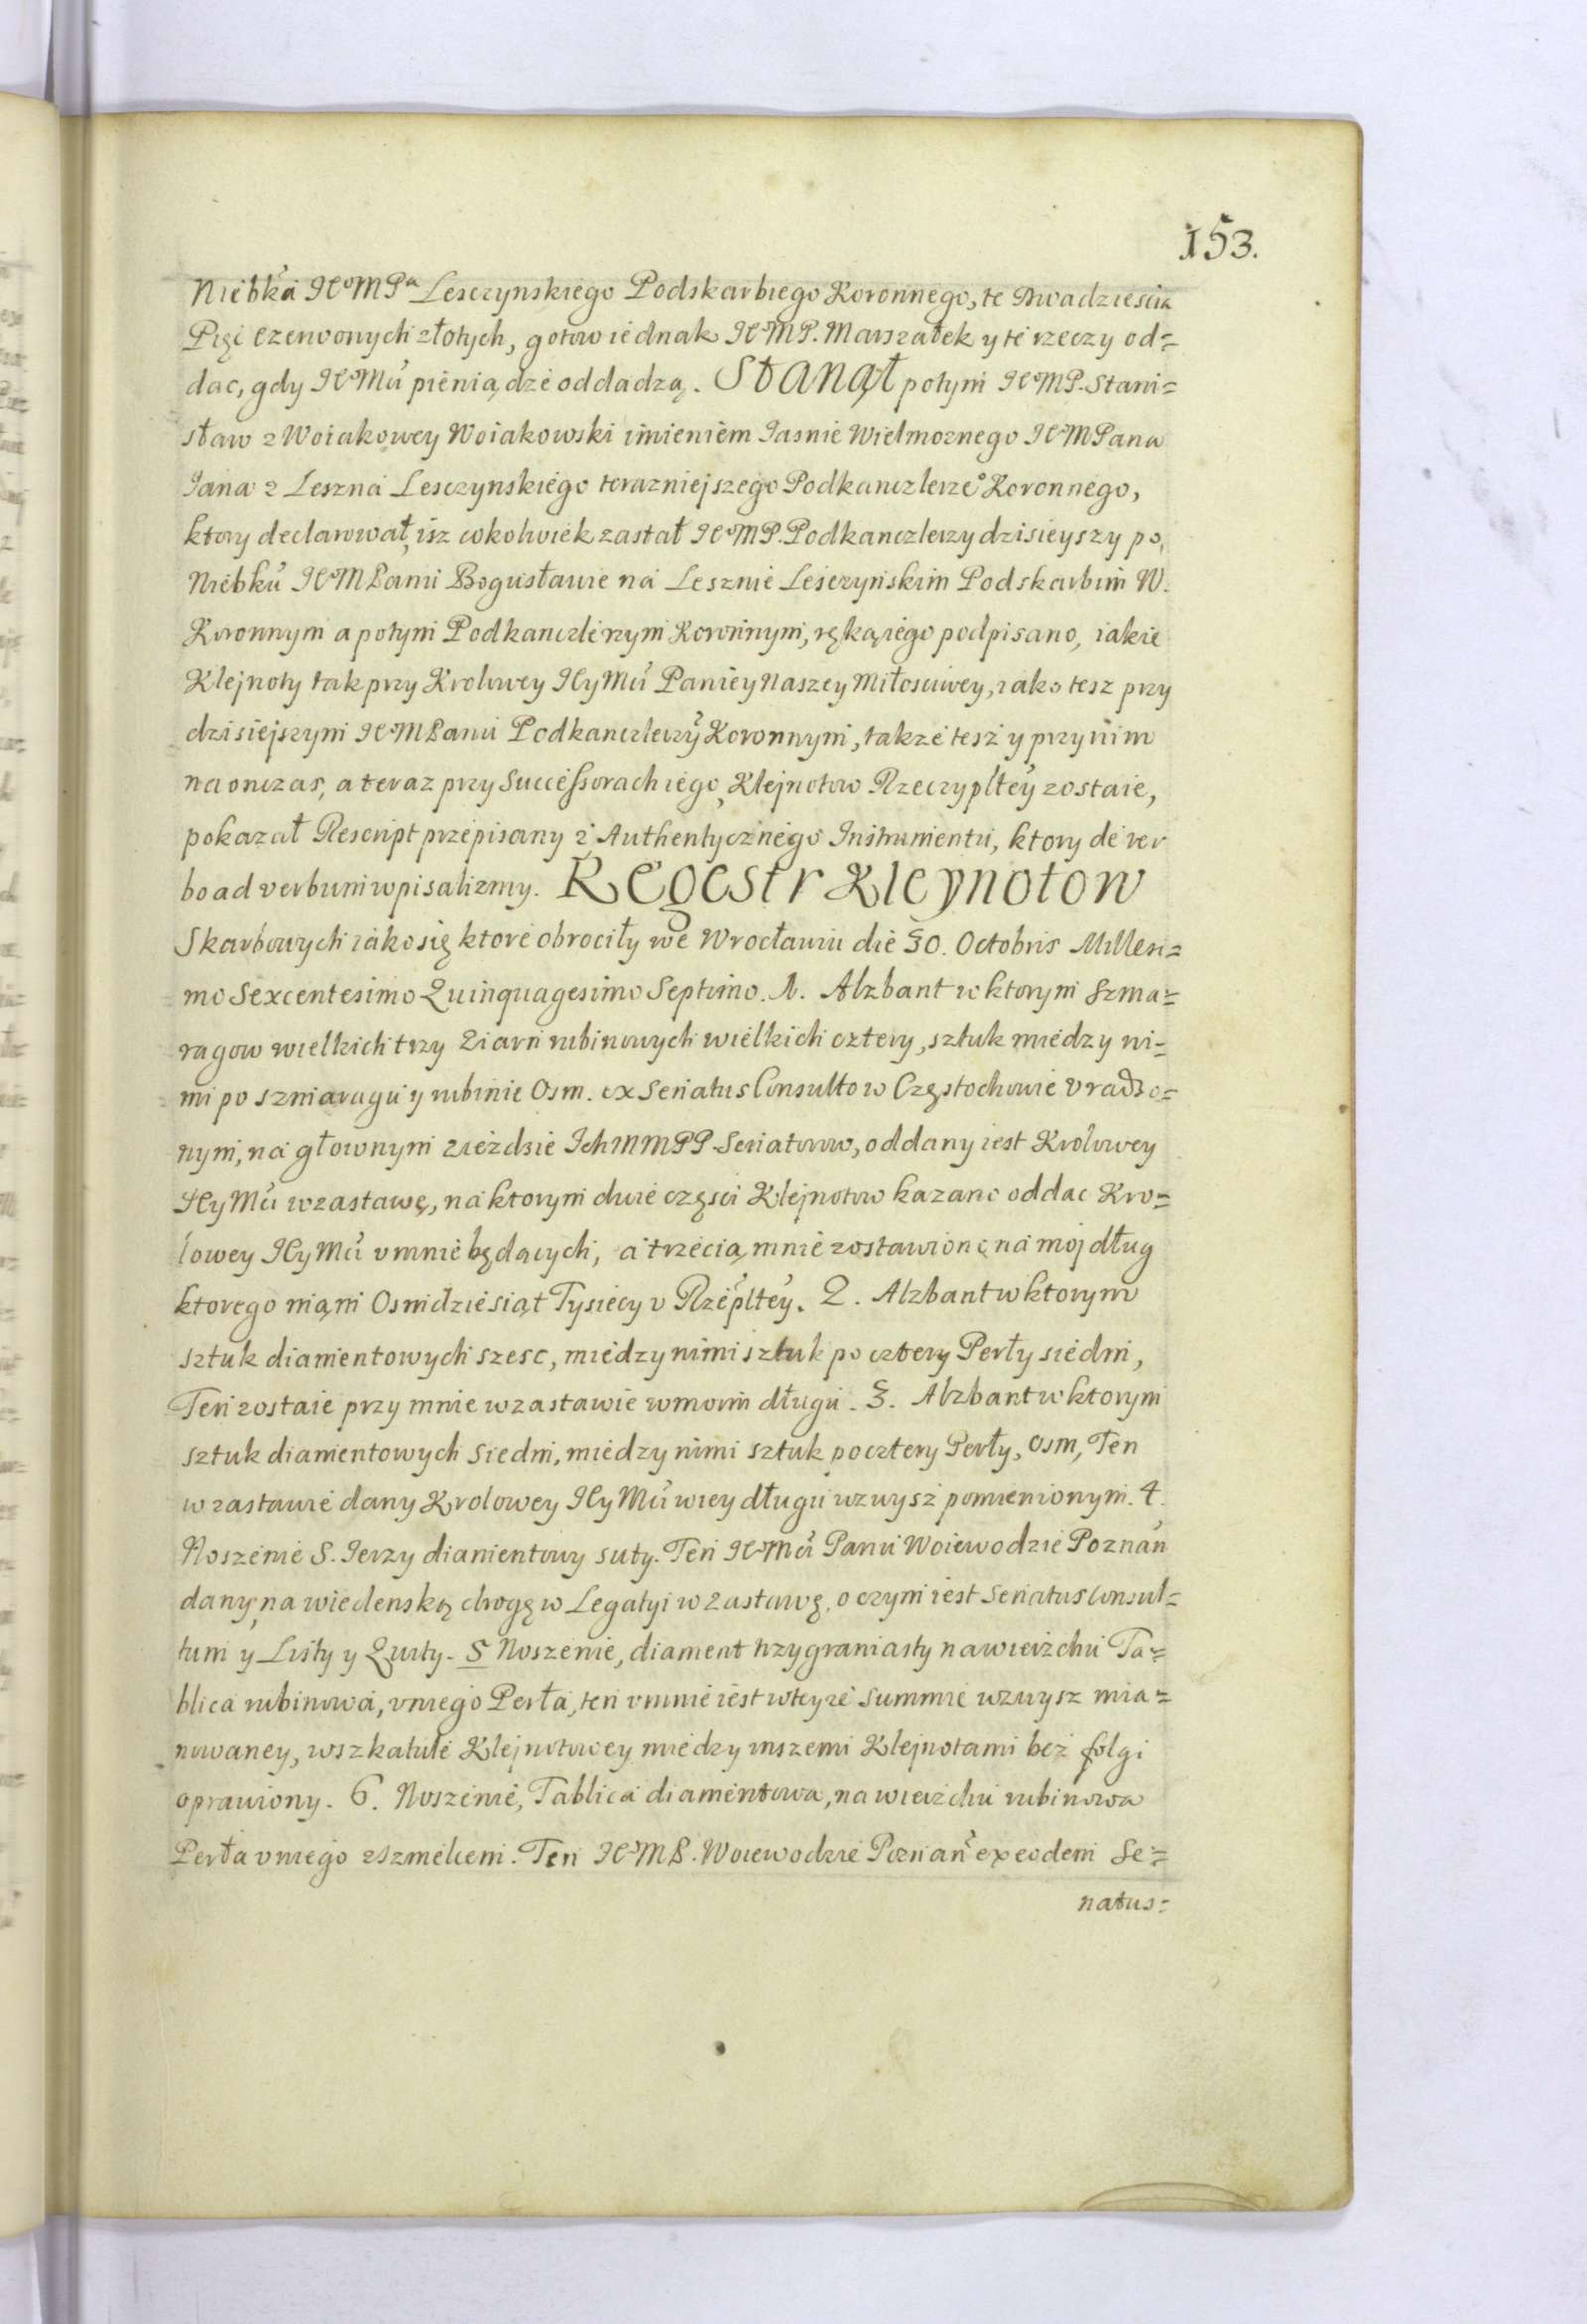 153.
Niebka JeoMPa Lesczynskiego Podskarbiego Koronnego, te Dwadziescia
Pięć Czerwonych złotych, gotow iednak JeoMP. Marszałek y te rzeczy od=
dac, gdy JeoMu pieniądze oddadzą. Stanął potym JeoMP. Stani=
sław z Woiakowey Woiakowski imieniem Jasnie Wielmoznego JeoMPana
Jana z Leszna Lesczynskiego terazniejszego Podkanczlerzeo Koronnego,
ktory declarował, isz cokolwiek zastał JeoMP. Podkanczlerzy dzisieyszy po,
Niebku JeoMPami Bogusławie na Lesznie Lesczyńskim Podskarbim W.
Koronnym a potym Podkanclerzym Koronnym, ręką iego podpisano, iakie
Klejnoty tak przy Krolowey JeyMu Paniey Naszey Miłosciwey, iako tesz przy
dzisiejszym JeoMPanu Podkanclerzy Koronnym, takze tesz y przy nim
na onczas, a teraz przy Successorach iego, Klejnotow Rzeczypltey zostaie,
pokazał Rescript przepisany z Authentycznego Instrumentu, ktory de ver
bo ad verbum wpisalizmy. Regestr Kleynotow
Skarbowych iako się ktore obrociły we Wrocławiu die 30. Octobris Millesi=
mo Sexcentesimo Quinquagesimo Septimo. 1. Alzbant w ktorym Szma=
ragow wielkich trzy Ziarn rubinowych wielkich cztery, sztuk miedzy ni=
mi po szmaragu y rubinie Osm. ex Senatus Consulto w Częstochowie vradzo=
nym, na głownym zieżdzie Ich MM PP Senatorow, oddany iest Krolowey
JeyMu w zastawę, na ktorym dwie częsci Klejnotow kazano oddac Kro=
lowey JeyMu v mnie będących, a trzecią mnie zostawiono na moj dług
ktorego mąm Osmdziesiąt Tysiecy v Rzepltey. 2. Alzbant w ktorym
sztuk diamentowych szesc, miedzy nimi sztuk po cztery Perły siedm,
Ten zostaie przy mnie w zastawie w moim długu. 3. Alzbant w ktorym
sztuk diamentowych siedm, miedzy nimi sztuk po cztery Perły, osm, Ten
w zastawie dany Krolowey JeyMu w iey długu wzwysz pomienionym. 4.
Noszenie S. Jerzy diamentowy suty. Ten JeoMu Panu Woiewodzie Poznan
dany, na wiedenską drogę w Legatyi w zastawę, o czym iest Senatus Consul=
tum y Listy y Quity. 5 Noszenie, diament trzygraniasty na wierzchu Ta=
blica rubinowa, v niego Perła, ten v mnie iest w teyze summie wzwysz mia=
nowaney, w szkatule Klejnotowey miedzy inszemi Klejnotami bez folgi
oprawiony. 6. Noszenie, Tablica diamentowa, na wierzchu rubinowa
Perła v niego z szmelcem. Ten JeoMP. Woiewodzie Poznan ex eodem Se=
natus=